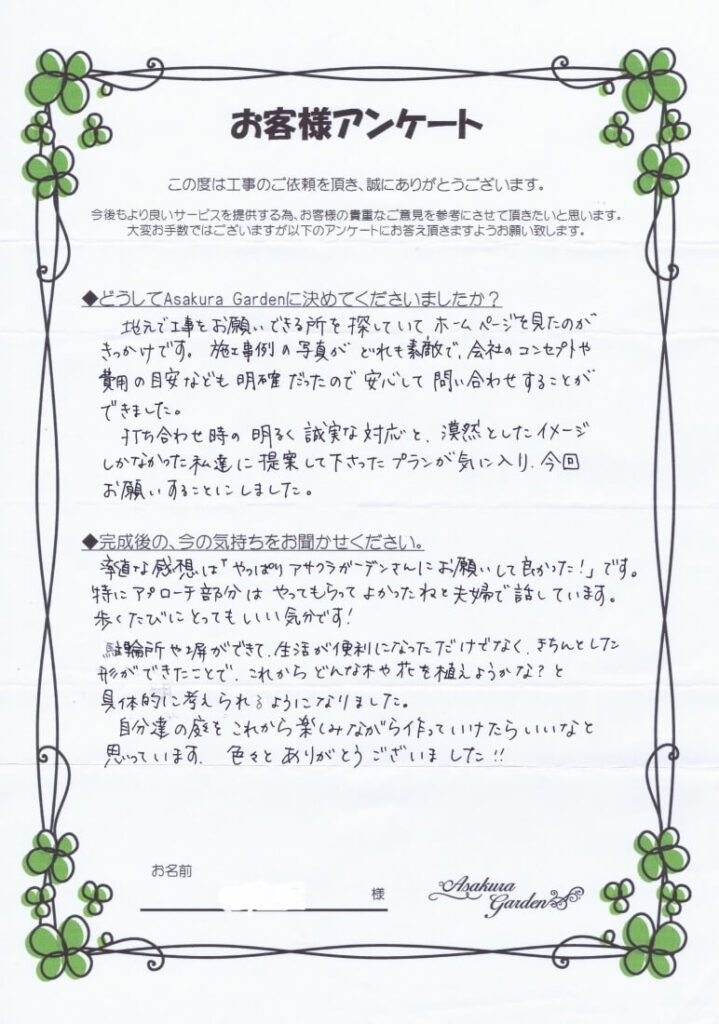 お客様アンケート
この度は工事のご依頼を頂き、誠にありがとうございます。
今後もより良いサービスを提供する為、お客様の貴重なご意見を参考にさせて頂きたいと思います。
大変お手数ではございますが以下のアンケートにお答え頂きますようお願い致します。
◆どうしてAsakura Gardenに決めてくださいましたか？
地元で工事をお願いできる所を探していてホームページを見たのが
きっかけです。施工事例の写真がどれも素敵で、会社のコンセプトや
費用の目安なども明確だったので安心して問い合わせすることが
できました。
打ち合わせ時の明るく誠実な対応と、漠然としたイメージ
しかなかった私達に提案して下さったプランが気に入り、今回
お願いすることにしました。
◆完成後の、今の気持ちをお聞かせください。
率直な感想は「やっぱりアサクラガーデンさんにお願いして良かった！」です。
特にアプローチ部分はやってもらってよかったねと夫婦で話しています。
歩くたびにとってもいい気分です！
駐輪所や塀ができて、生活が便利になっただけでなく、きちんとした
形ができたことで、これからどんな木や花を植えようかな？と
具体的に考えられるようになりました。
自分達の庭をこれから楽しみながら作っていけたらいいなと
思っています。色々とありがとうございました!!
お名前
様
Asakura
Garden